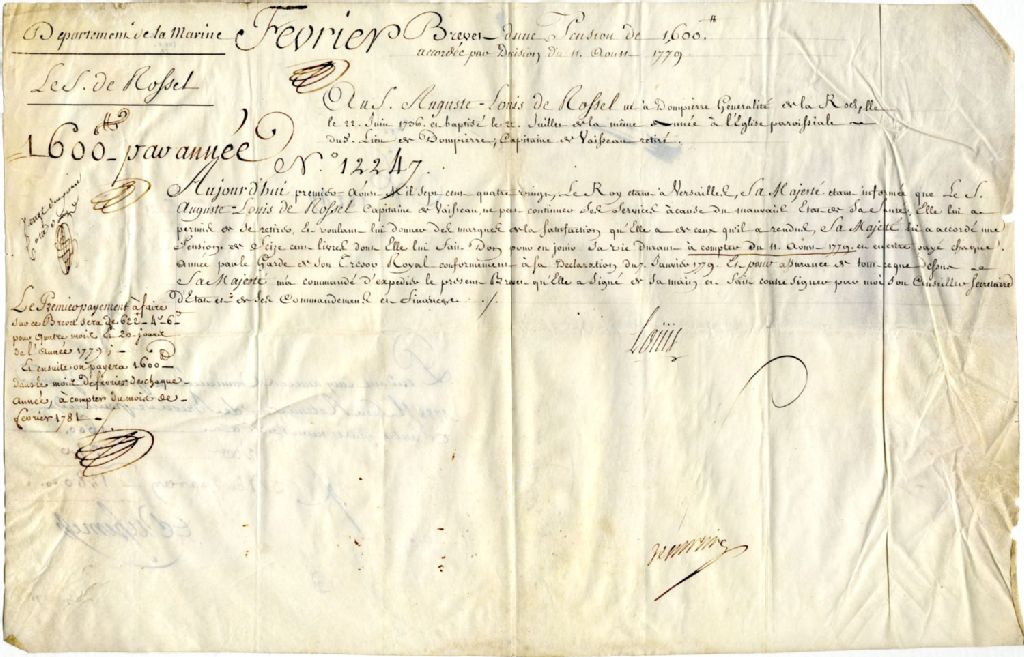 Departement de la Marine
Fevrier
Brevet d'une Pension de 1600.tt
accordée par Decision du 11. Aoust 1779
Le S. de Rossel
Au S. Auguste-Louis de Rossel né à Dompierre Generalité de la Rochelle
le 22. Juin 1736. et baptisé le 22. Juillet de la même année à l'Eglise paroissiale
dud. Lieu de Dompierre, Capitaine de Vaisseau retiré.
1600tt par année
N.° 12247.
Aujourd'huy premier Aoust Mil sept cent quatre vingt, Le Roy etant à Versailles, Sa Majesté etant informée que Le S.
Auguste-Louis de Rossel Capitaine de Vaisseau, ne peut continuer ses services à cause du mauvais Etat de sa Santé, Elle lui a
permis de se retirer, Et voulant lui donner des marques de la satisfaction qu'Elle a de ceux qu'il a rendus, Sa Majesté lui a accordé une
Pension de Seize cent livres dont Elle lui fait Don pour en jouir sa vie durant à compter du 11. Août 1779. et en etre payé chaque
Année par le Garde de son Tresor Royal conformément à sa Declaration du 7. Janvier 1779. Et pour assurance de tout ce que dessus
Sa Majesté m'a commandé d'expedier le present Brevet qu'Elle a Signé de sa main et fait contresigner par moi son Conseiller Secretaire
d'Etat et de ses Commandemens et Finances ./.
Le Premier payement à faire
sur ce Brevet sera de 622tt 4s 6d
pour quatre mois et 20 jours
de l'Année 1779;
Et ensuite on payera 1600tt
dans le mois de février de chaque
année, à compter du mois de
fevrier 1781
Louis